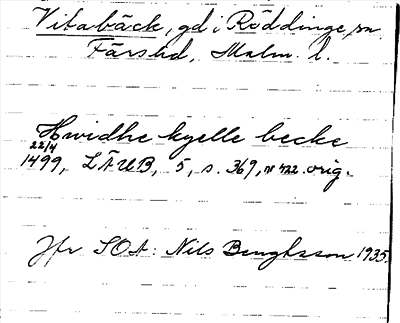 Vitabäck, gd i Röddinge sn
Färs hd, Malm. l.
Hwidhe kyelle becke
22/4
1499, LÄUB, 5, s. 369, nr 422. orig.
Jfr SOA: Nils Bengtsson 1935.